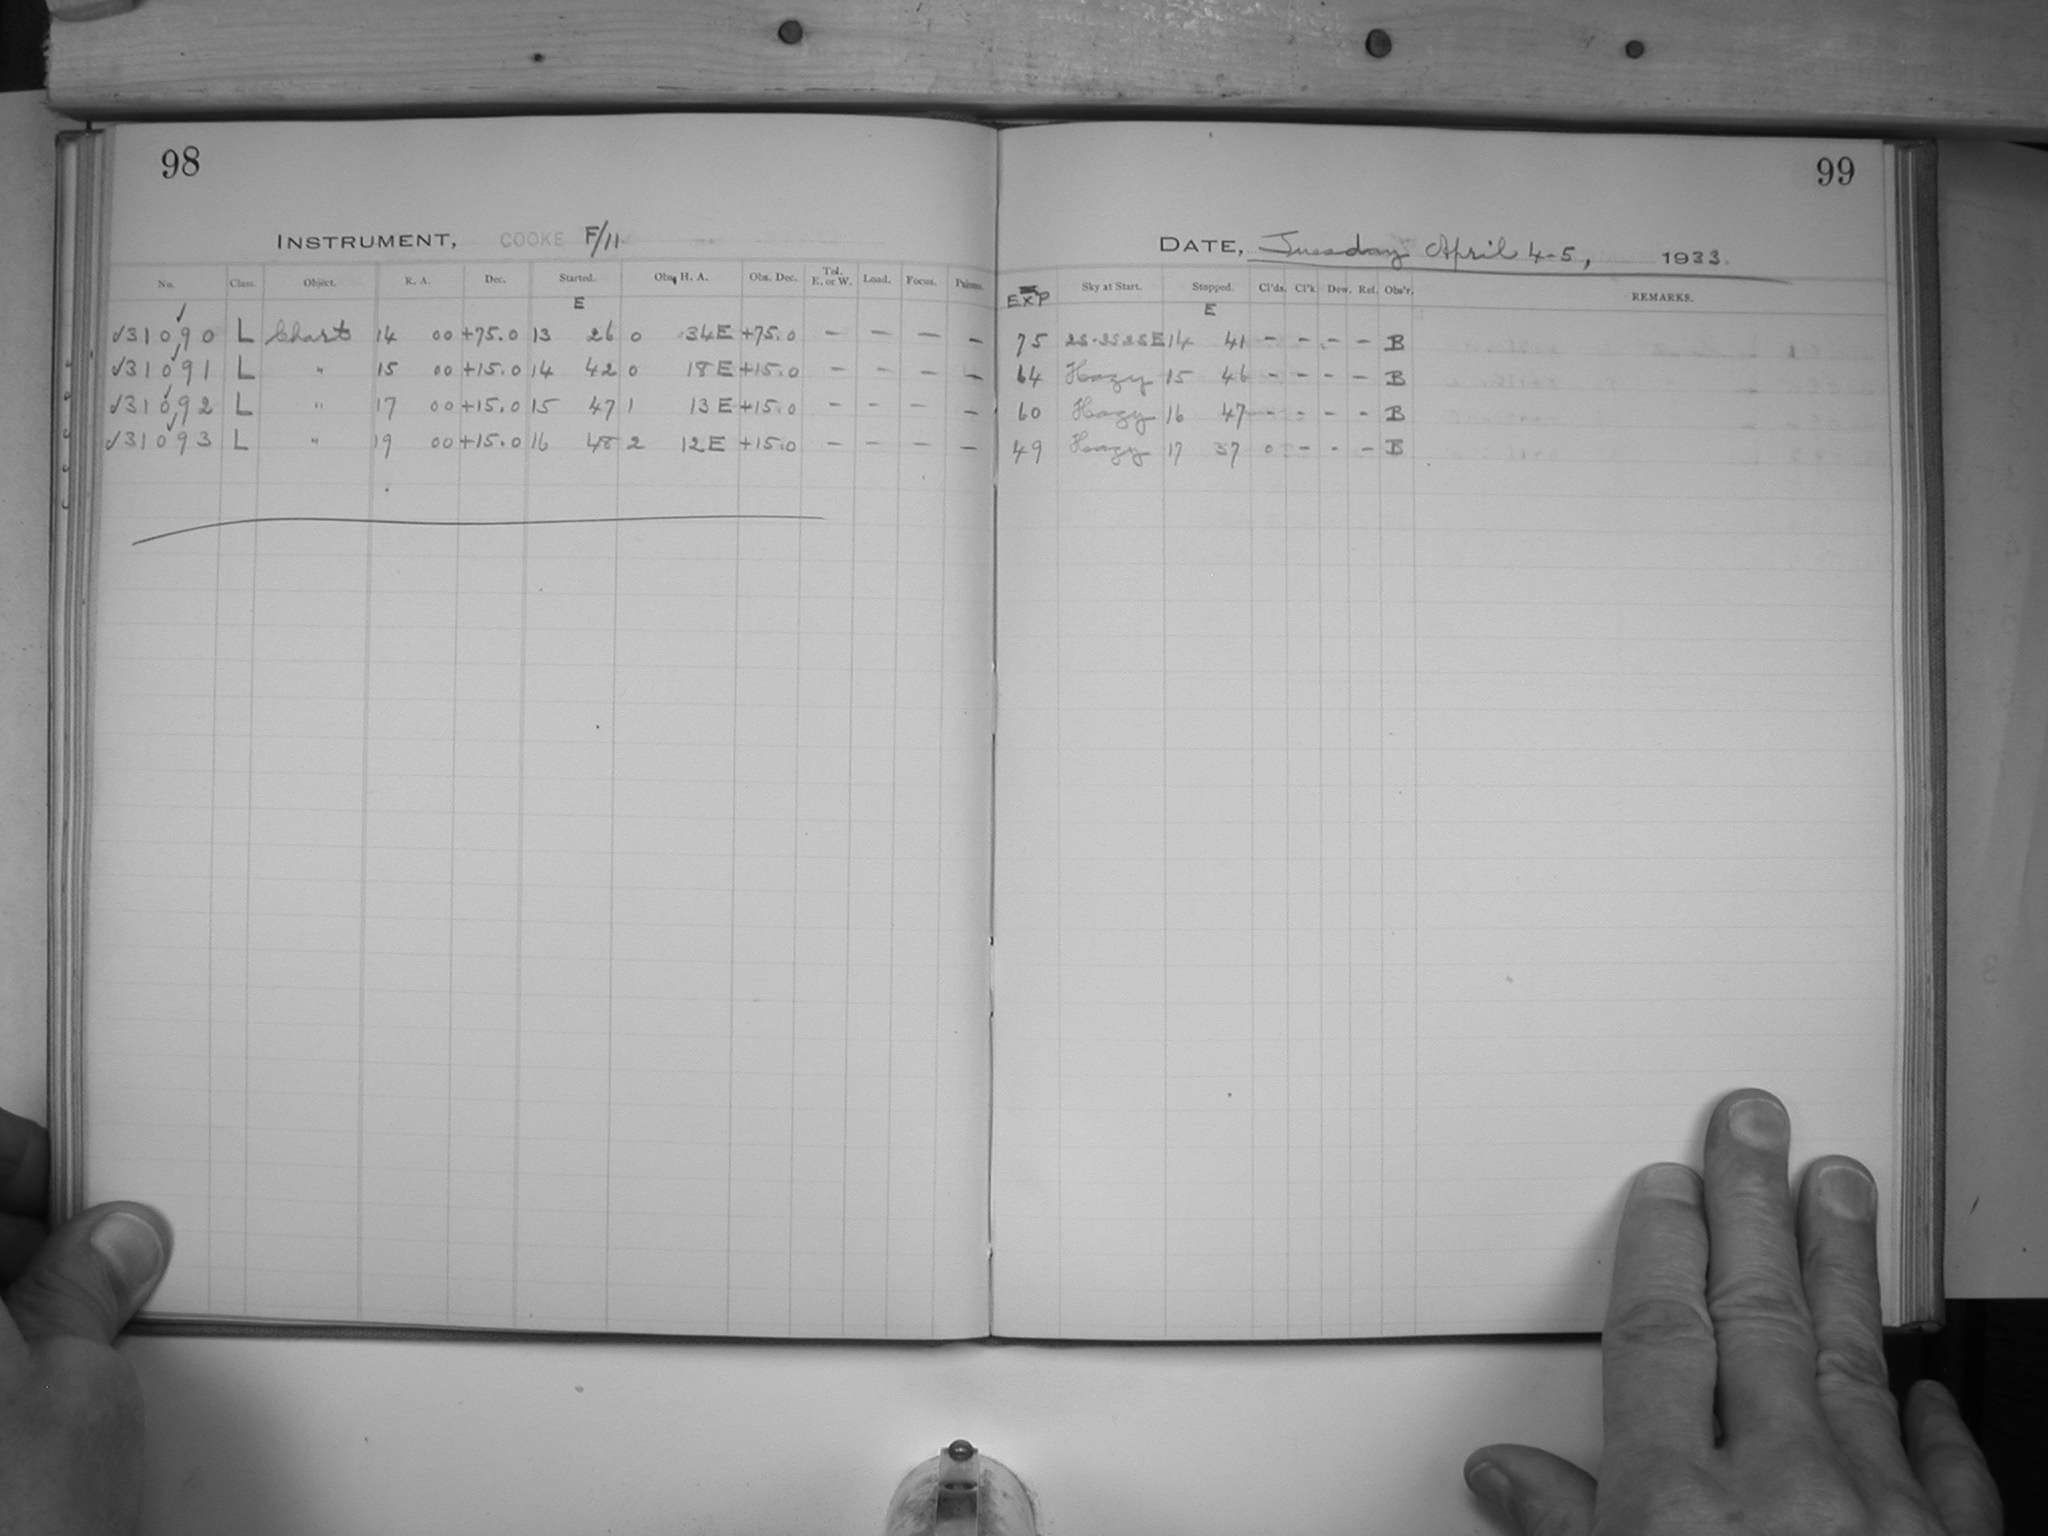 98
INSTRUMENT, COOKE F/11
No. Class. Object. R. A. Dec. Started. Obs. H. A. Obs. Dec. Tel. E. or W. Load. Focus. Prisms.
E
✓31090 L Chart 14 00 +75.0 13 26 0 34E +75.0 — — — —
✓31091 L " 15 00 +15.0 14 42 0 18E +15.0 — — — —
✓31092 L " 17 00 +15.0 15 47 1 13E +15.0 — — — —
✓31093 L " 19 00 +15.0 16 48 2 12E +15.0 — — — —
99
DATE, Tuesday April 4-5, 1933.
EXP Sky at Start. Stopped. Cl'ds. Cl'k Dew. Rel. Obs'r. REMARKS.
E
75 25·25 25E 14 41 - - - - B
64 Hazy 15 46 - - - - B
60 Hazy 16 47 - - - - B
49 Hazy 17 37 0 - - - B